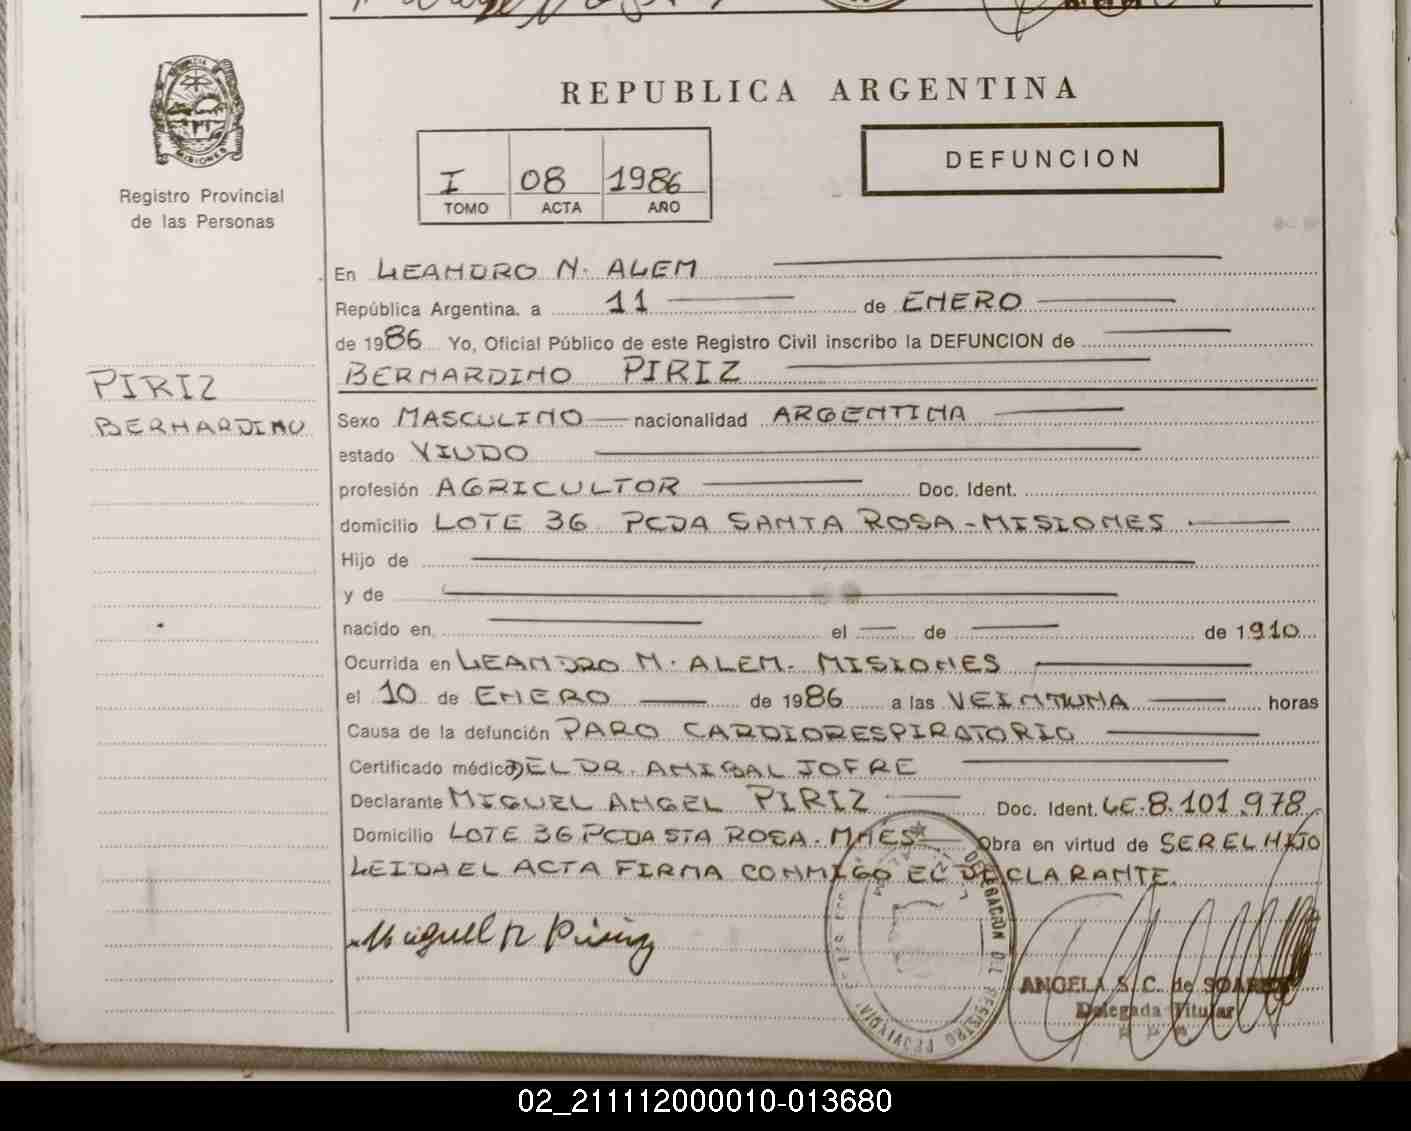 REPUBLICA ARGENTINA
DEFUNCION
I 08 1986
TOMO ACTA AÑO
PROVINCIA DE
MISIONES
Registro Provincial
de las Personas
PIRIZ
BERNARDINO
En LEANDRO N. ALEM
República Argentina. a 11 de ENERO
de 1986 Yo, Oficial Público de este Registro Civil inscribo la DEFUNCION de
BERNARDINO PIRIZ
Sexo MASCULINO nacionalidad ARGENTINA
estado VIUDO
profesión AGRICULTOR Doc. Ident.
domicilio LOTE 36 PCDA SANTA ROSA - MISIONES
Hijo de
y de
nacido en el de de 1910
Ocurrida en LEANDRO N. ALEM. MISIONES
el 10 de ENERO de 1986 a las VEINTIUNA horas
Causa de la defunción PARO CARDIORESPIRATORIO
Certificado médico DEL DR. ANIBAL JOFRE
Declarante MIGUEL ANGEL PIRIZ Doc. Ident. LE. 8.101.978
Domicilio LOTE 36 PCDA STA ROSA. MNES Obra en virtud de SER EL HIJO
LEIDA EL ACTA FIRMA CONMIGO EL DECLARANTE.
Miguel A Piriz
DELEGACION DEL REGISTRO PROVINCIAL
ANGELA S. C. de SOAREZ
Delegada Titular
02_211112000010-013680